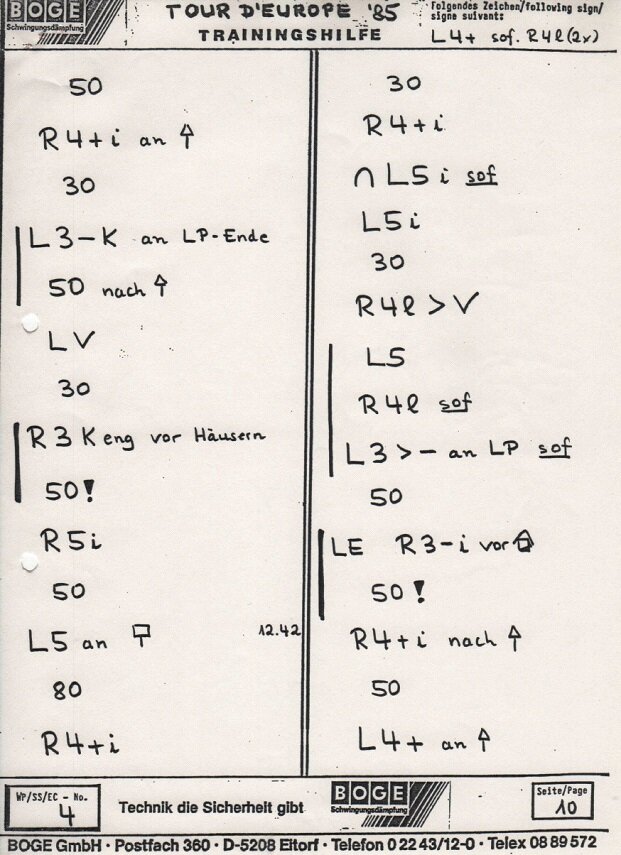 BOGE
Schwingungsdämpfung
TOUR D'EUROPE '85
TRAININGSHILFE
Folgendes Zeichen/following sign/
signe suivant:
L4+ sof. R4l (2x)
50
R4+i an
30
L3-K an LP-Ende
50 nach
LV
30
R3 K eng vor Häusern
50!
R5i
50
L5 an
12.42
80
R4+i
30
R4+i
∩ L5i sof
L5i
30
R4l > V
L5
R4l sof
L3>- an LP sof
50
LE R3-i vor
50!
R4+i nach
50
L4+ an
WP/SS/EC - No.
4
Technik die Sicherheit gibt
BOGE
Schwingungsdämpfung
Seite/Page
10
BOGE GmbH · Postfach 360 · D-5208 Eitorf · Telefon 0 22 43/12-0 · Telex 08 89 572